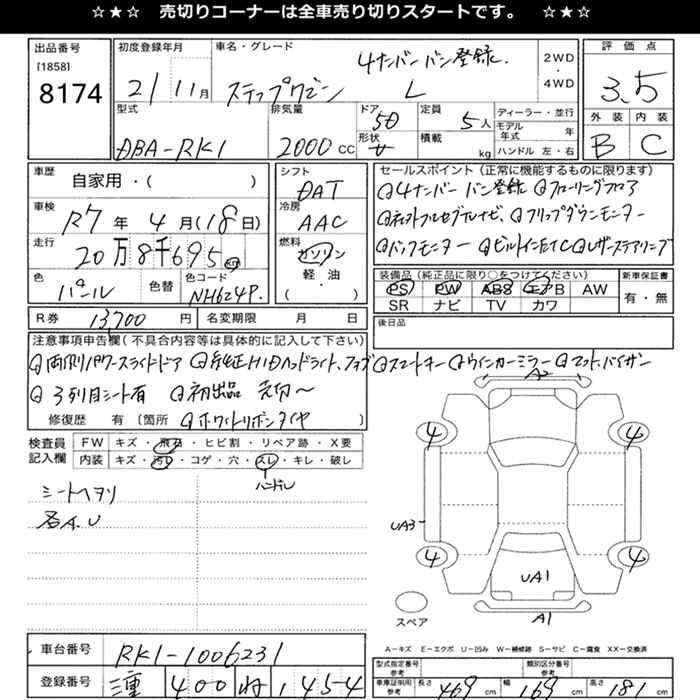 ☆★☆ 売切りコーナーは全車売り切りスタートです。 ☆★☆
出品番号
[1858]
8174
初度登録年月
21 11月
車名・グレード
4ナンバー バン登録.
ステップワゴン L
2WD
・
4WD
評価点
3.5
外装 内装
B C
型式
DBA-RK1
排気量
2000 CC
ドア 5D
形状
定員 5人
積載 kg
ディーラー・並行
モデル年式 年
ハンドル 左・右
車歴
自家用・( )
車検
R7年 4月(18日)
走行
20万8千695km
色
パール
色替
色コード
NH624P.
シフト
DAT
冷房
AAC
燃料
ガソリン
軽・油
( )
セールスポイント(正常に機能するものに限ります)
4ナンバー バン登録 フローリングフロア
フリップダウンモニター
バックモニター ビルトインETC レザーステアリング
装備品(純正品に限り○をつけてください)
PS PW ABS エアB AW
SR ナビ TV カワ
新車保証書
有・無
R券 13700円
名変期限 月 日
後日品
注意事項申告欄(不具合内容等は具体的に記入して下さい)
両側パワースライドドア 純正HIDヘッドライト、フォグ スマートキー ウインカーミラー マット、バイザー
3列目シート有 初出品 売切〜
修復歴 有〔箇所 ホワイトリボンタイヤ 〕
検査員記入欄
FW キズ・飛石・ヒビ割・リペア跡・X要
内装 キズ・汚れ・コゲ・穴・スレ・キレ・破レ
ハンドル
シートヘタリ
各A.U
A2
4 4
UA3
4 4
UA1
A1
スペア
A−キズ E−エクボ U−凹み W−補修跡 S−サビ C−腐食 XX−交換済
車台番号
RK1-1006231
登録番号
三重 400 ね 145-4
型式指定番号 参考
類別区分番号 参考
車庫証明用 参考
長さ 469 cm
幅 169 cm
高さ 181 cm